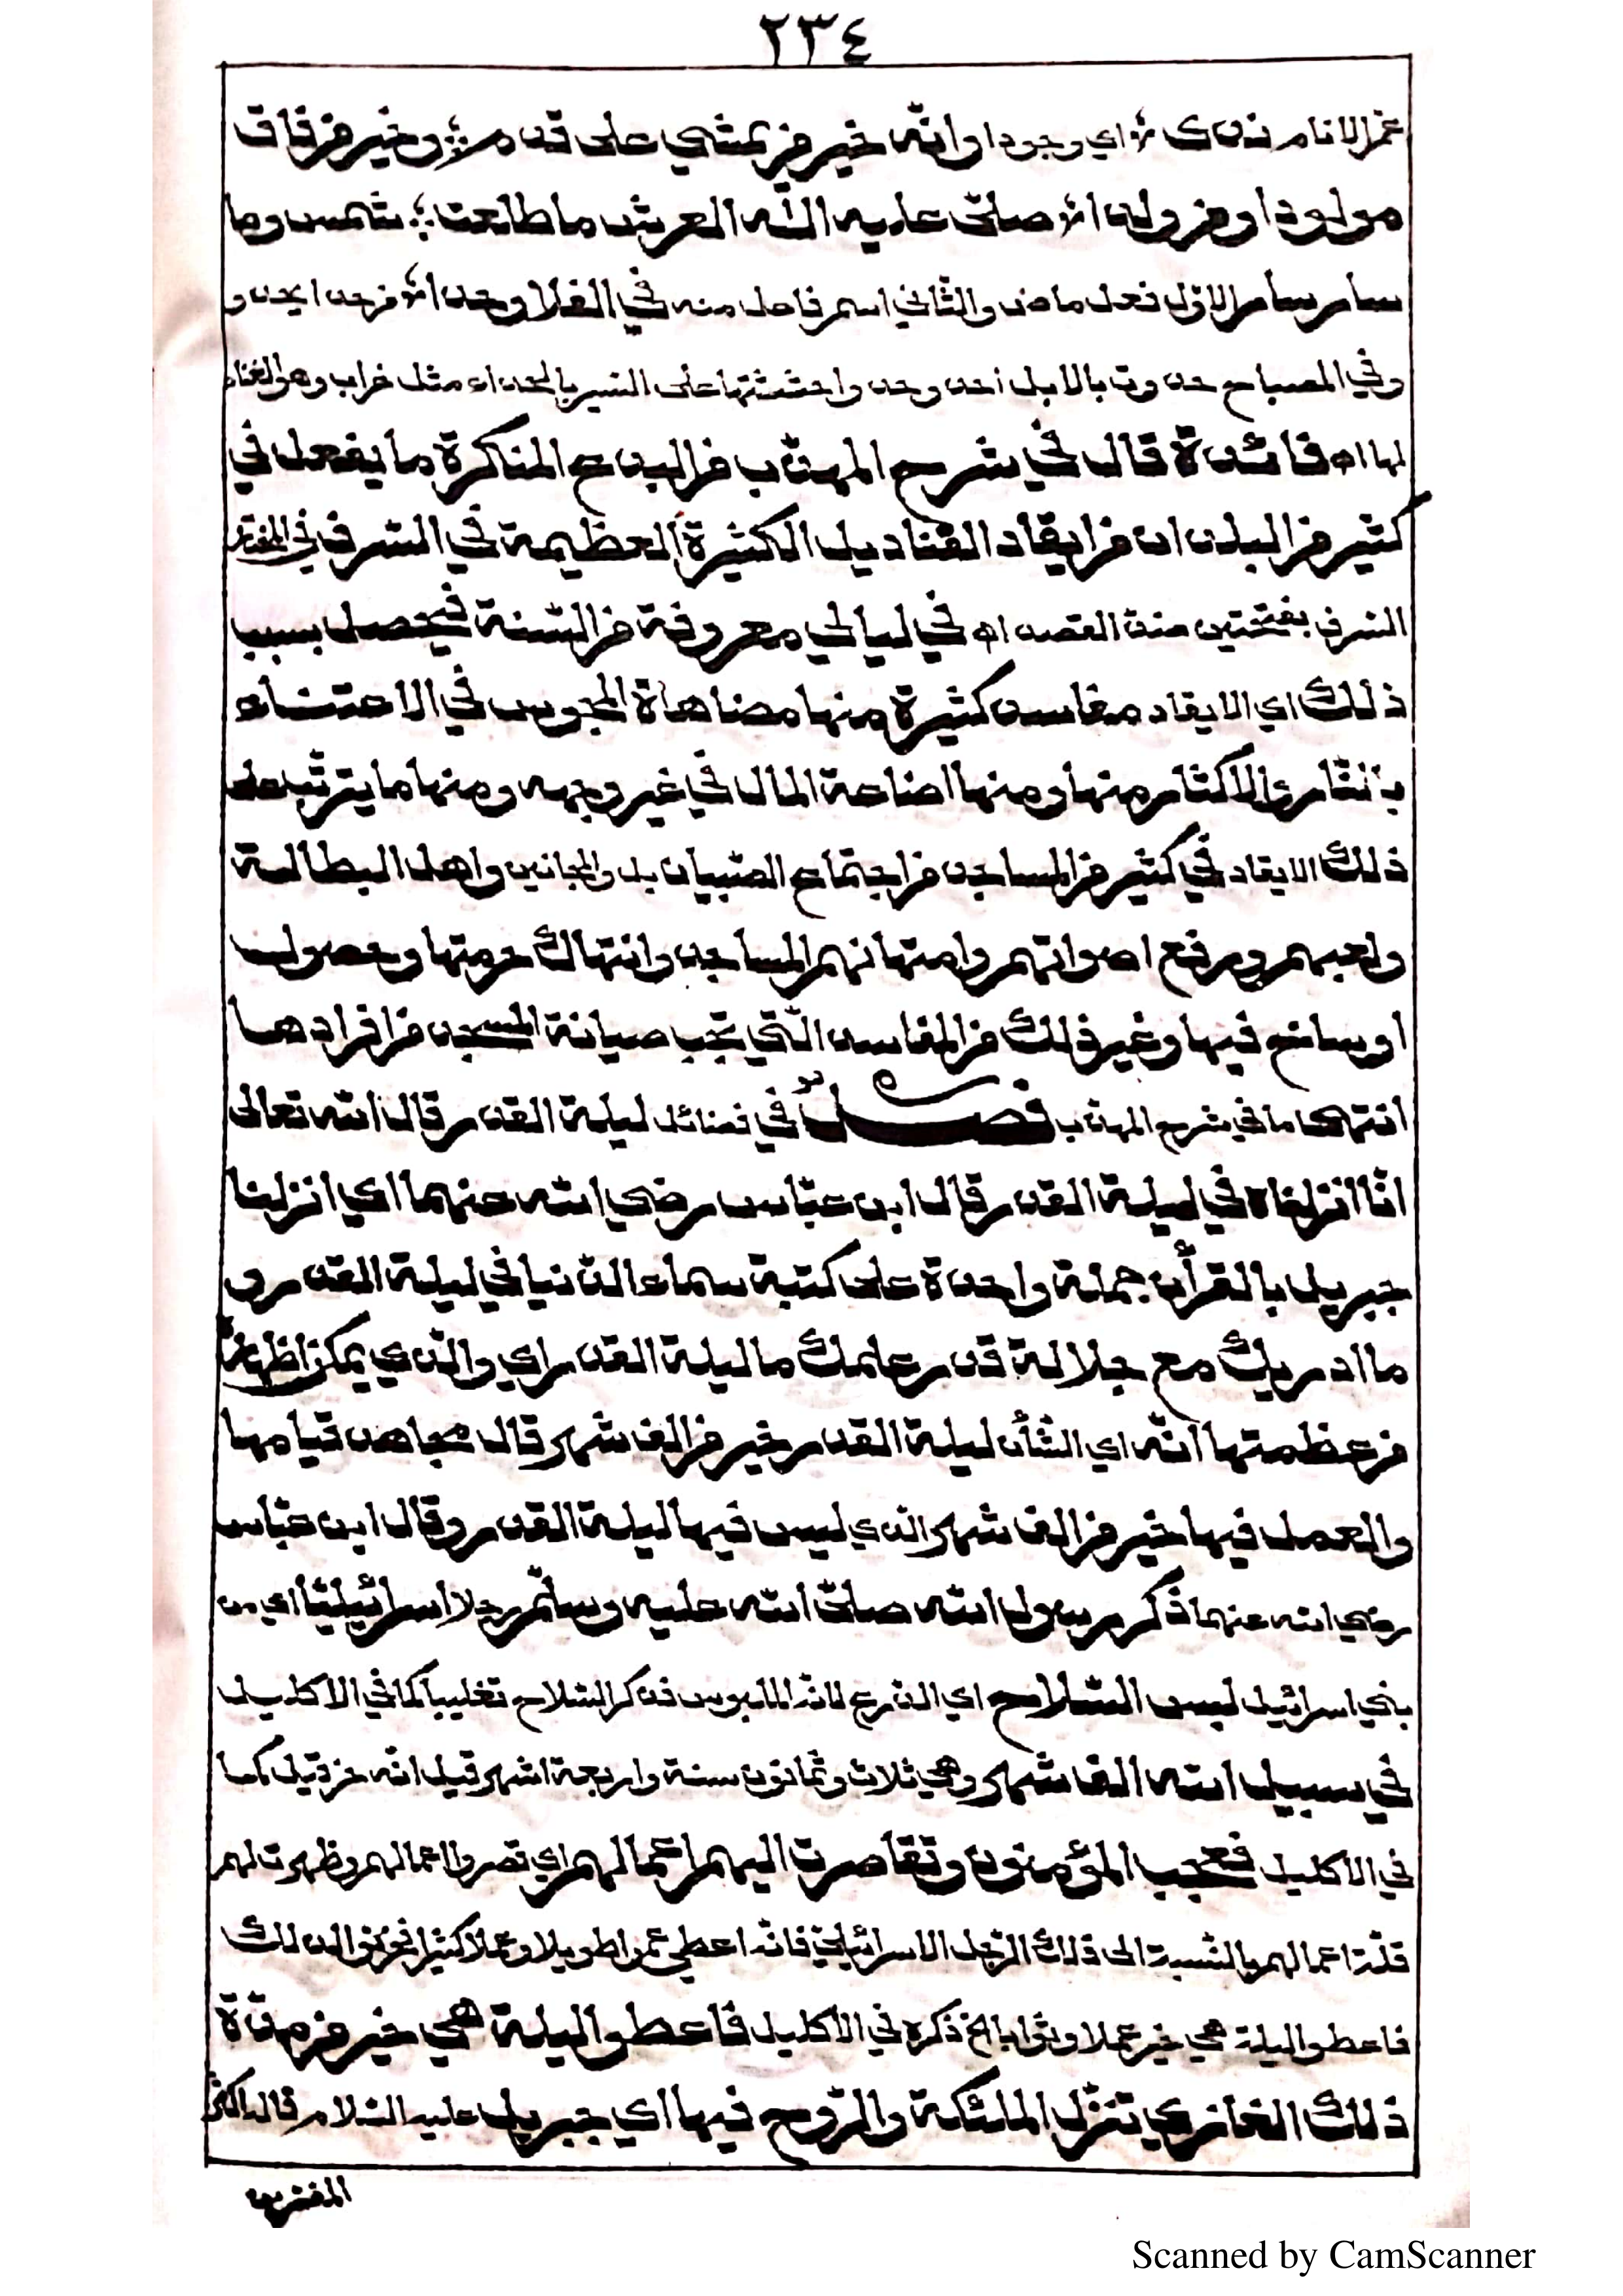 ٢٣٤
عمّ الانام ندى اي وجودا وانّه خير من يمشي على قدم وخير من فاق
مولودا ومن ولدا صلّى عليه اله العرش ما طلعت شمس وما
سار سار الاوّل فعل ماض والثاني اسم فاعل منه في الفلا وحدا من حدا يحدو
وفي المصباح حدوت بالابل احدو حدوا حثثتها على السير بالحداء مثل غراب وهو الغناء
لها اه فائدة قال في شرح المهذّب من البدع المنكرة ما يفعل في
كثير من البلدان من ايقاد القناديل الكثيرة العظيمة في السرف في المختار
السرف بفتحتين ضدّ القصد اه في ليالي معروفة من السّنة فيحصل بسبب
ذلك اي الايقاد مفاسد كثيرة منها مضاهاة المجوس في الاعتناء
بالنّار والاكثار منها ومنها اضاعة المال في غير وجهه ومنها ما يترتّب على
ذلك الايقاد في كثير من المساجد من اجتماع الصّبيان بل والمجانين واهل البطالة
ولعبهم ورفع اصواتهم وامتهانهم المساجد وانتهاك حرمتها وحصول
اوساخ فيها وغير ذلك من المفاسد الّتي تجب صيانة المسجد من افرادها
انتهى ما في شرح المهذّب فصل في فضائل ليلة القدر قال الله تعالى
انّا انزلناه في ليلة القدر قال ابن عبّاس رضي الله عنهما اي انزلنا
جبريل بالقرأن جملة واحدة على كتبة سماء الدّنيا في ليلة القدر و
ما ادريك مع جلالة قدر علمك ما ليلة القدر اي والّذي يمكن اظهاره
من عظمتها انّه اي الشأن ليلة القدر خير من الف شهر قال مجاهد قيامها
والعمل فيها خير من الف شهر الذي ليس فيها ليلة القدر وقال ابن عبّاس
رضي الله عنهما ذكر رسول الله صلّى الله عليه وسلّم رجلا اسرائيليّا اي من
بني اسرائيل لبس السّلاح اي الدّرع لانّه الملبوس فذكر السّلاح تغليبا كما في الاكليل
في سبيل الله الف شهر وهي ثلاث وثمانون سنة واربعة اشهر قيل انّه حزقيل كما
في الاكليل فعجب المؤمنون وتقاصرت اليهم اعمالهم اي قصروا اعمالهم وظهرت لهم
قلّة اعمالهم بالنّسبة الى ذلك الرّجل الاسرائيليّ فانّه اعطي عمرا طويلا وعملا كثيرا لذلك
فاعطوا ليلة هي خير عملا وثوابا الخ ذكره في الاكليل فاعطوا ليلة هي خير من مدّة
ذلك الغازي تنزّل الملئكة والرّوح فيها اي جبريل عليه السّلام قاله اكثر
المفسّرين
Scanned by CamScanner